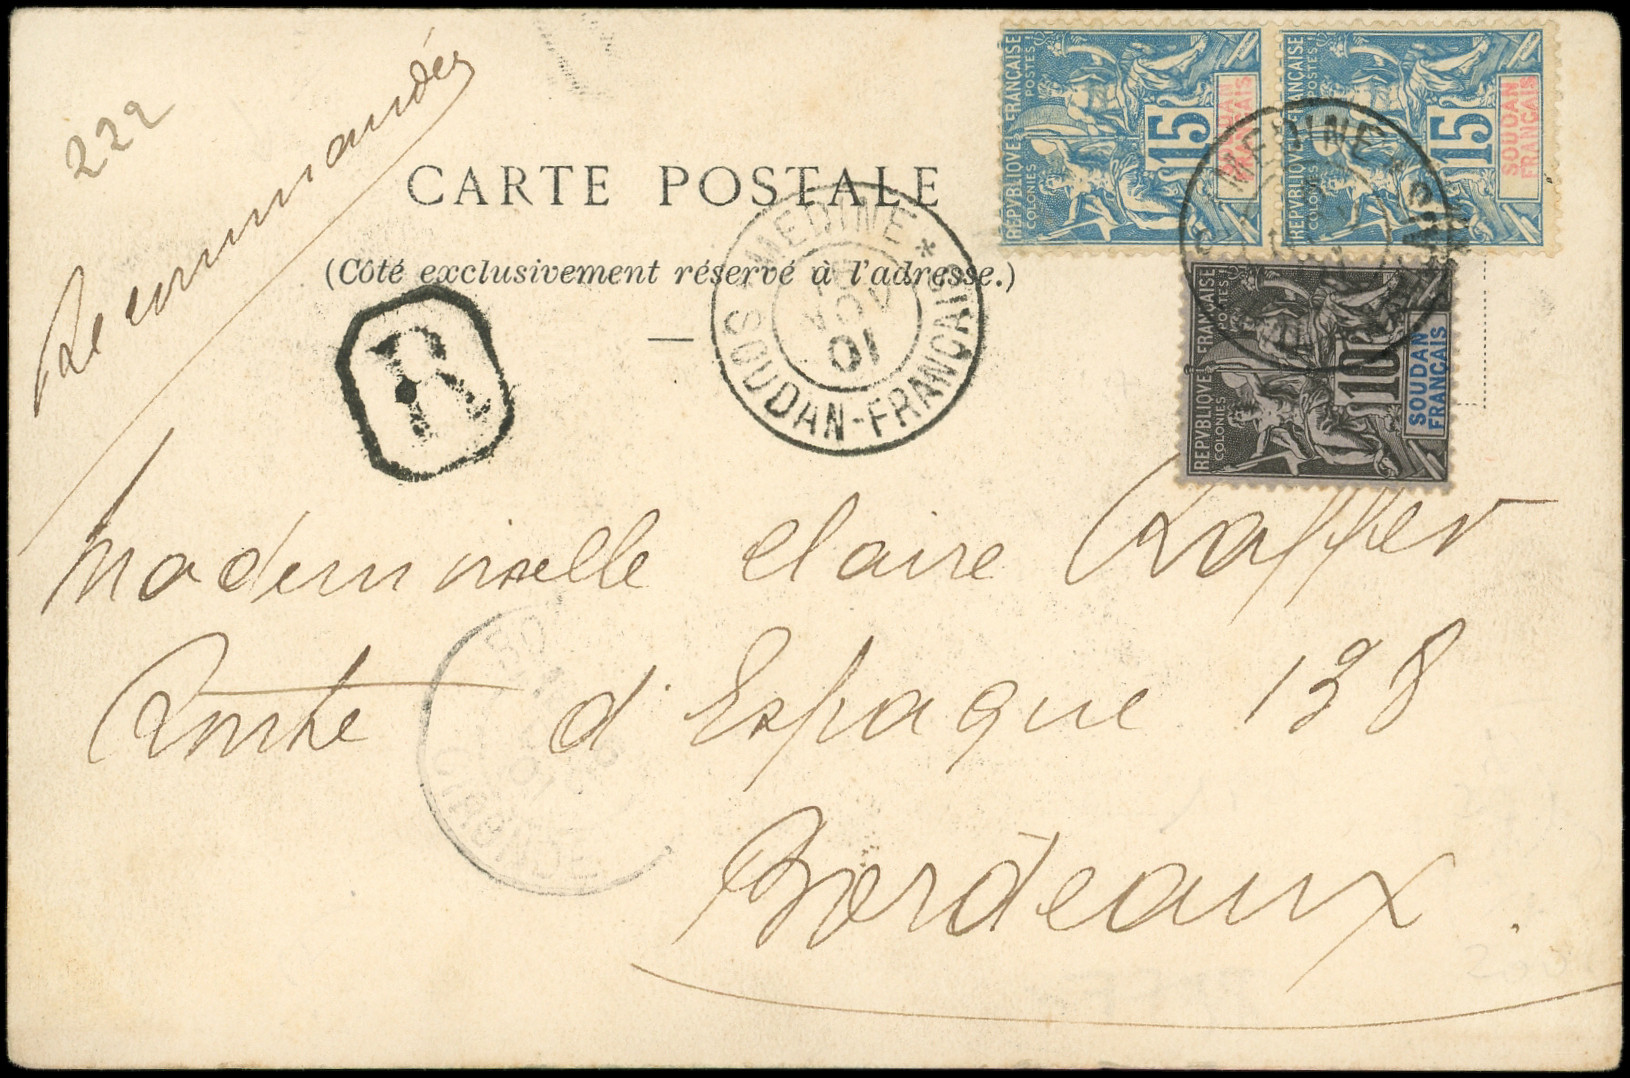 222
Recommandée
REPVBLIQVE FRANÇAISE
COLONIES
POSTES
15
SOUDAN
FRANÇAIS
REPVBLIQVE FRANÇAISE
COLONIES
POSTES
15
SOUDAN
FRANÇAIS
MEDINE
CARTE POSTALE
(Côté exclusivement réservé à l'adresse.)
R
MEDINE *
NOV
01
SOUDAN-FRANÇAIS
REPVBLIQVE FRANÇAISE
COLONIES
POSTES
10
SOUDAN
FRANÇAIS
Mademoiselle Claire
d'Espagne 138
GIRONDE
Bordeaux.